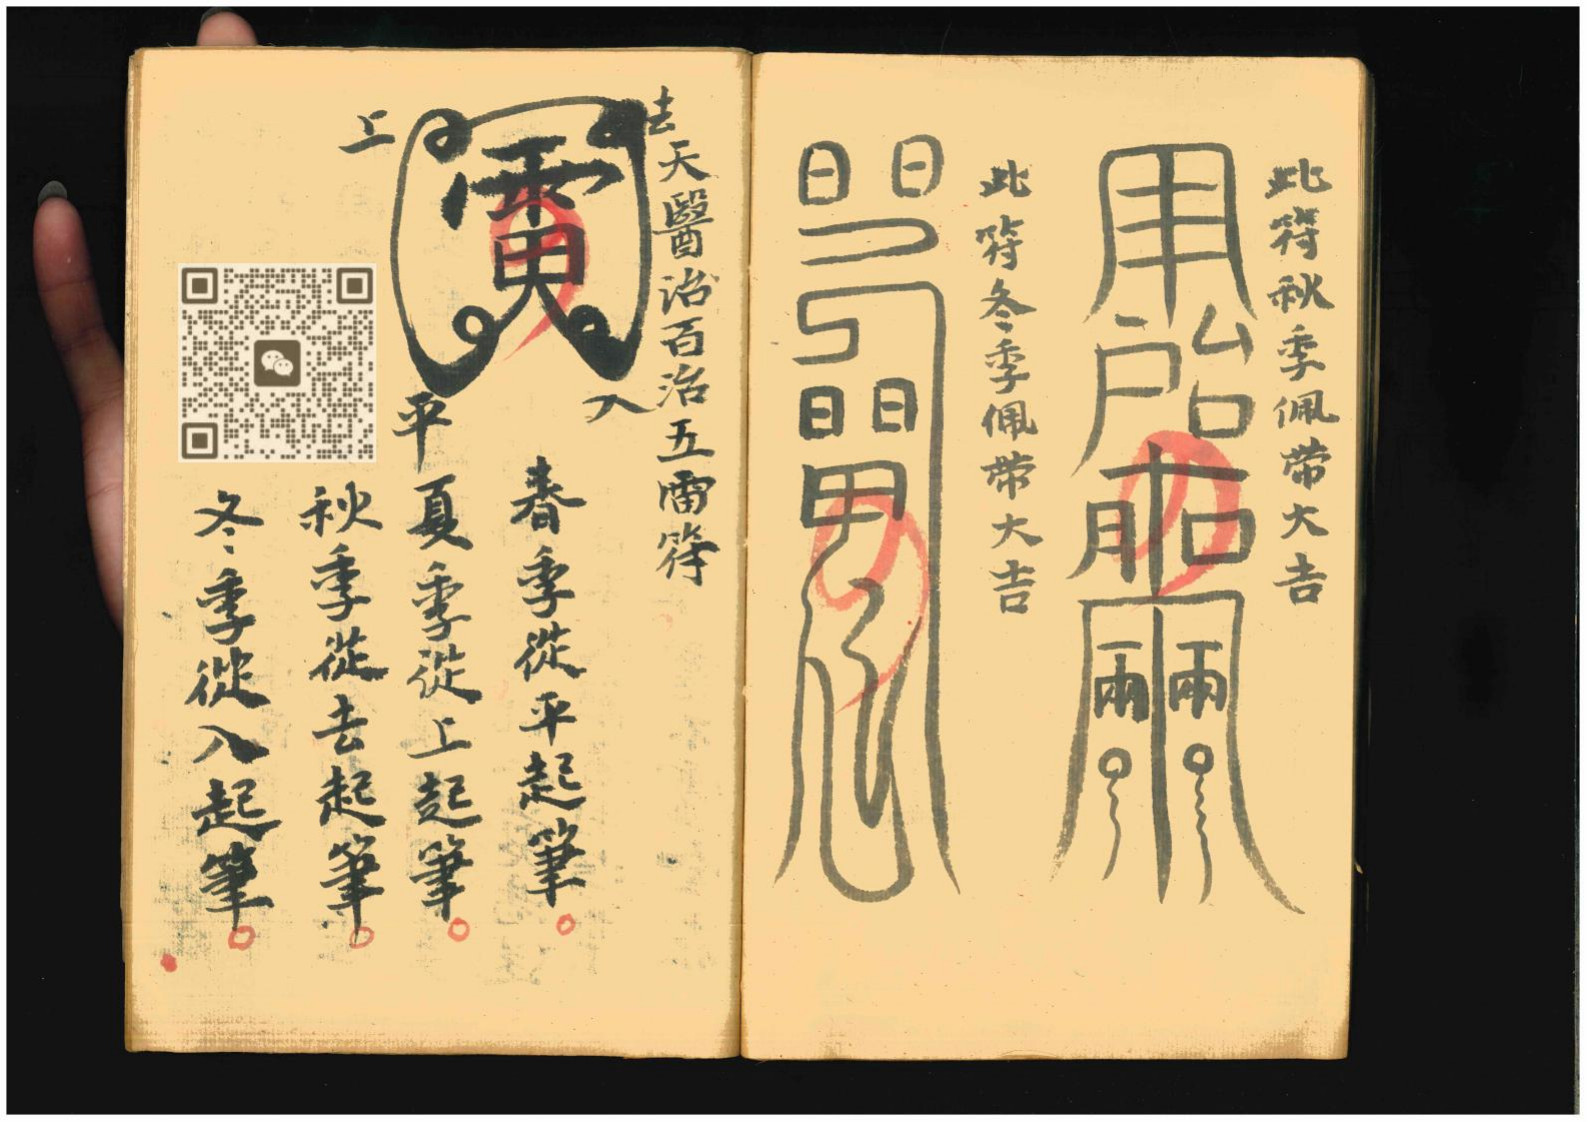 此符秋季佩带大吉
此符冬季佩带大吉
天醫治百治五雷符
去
上
入
平
春季從平起筆
夏季從上起筆
秋季從去起筆
冬季從入起筆